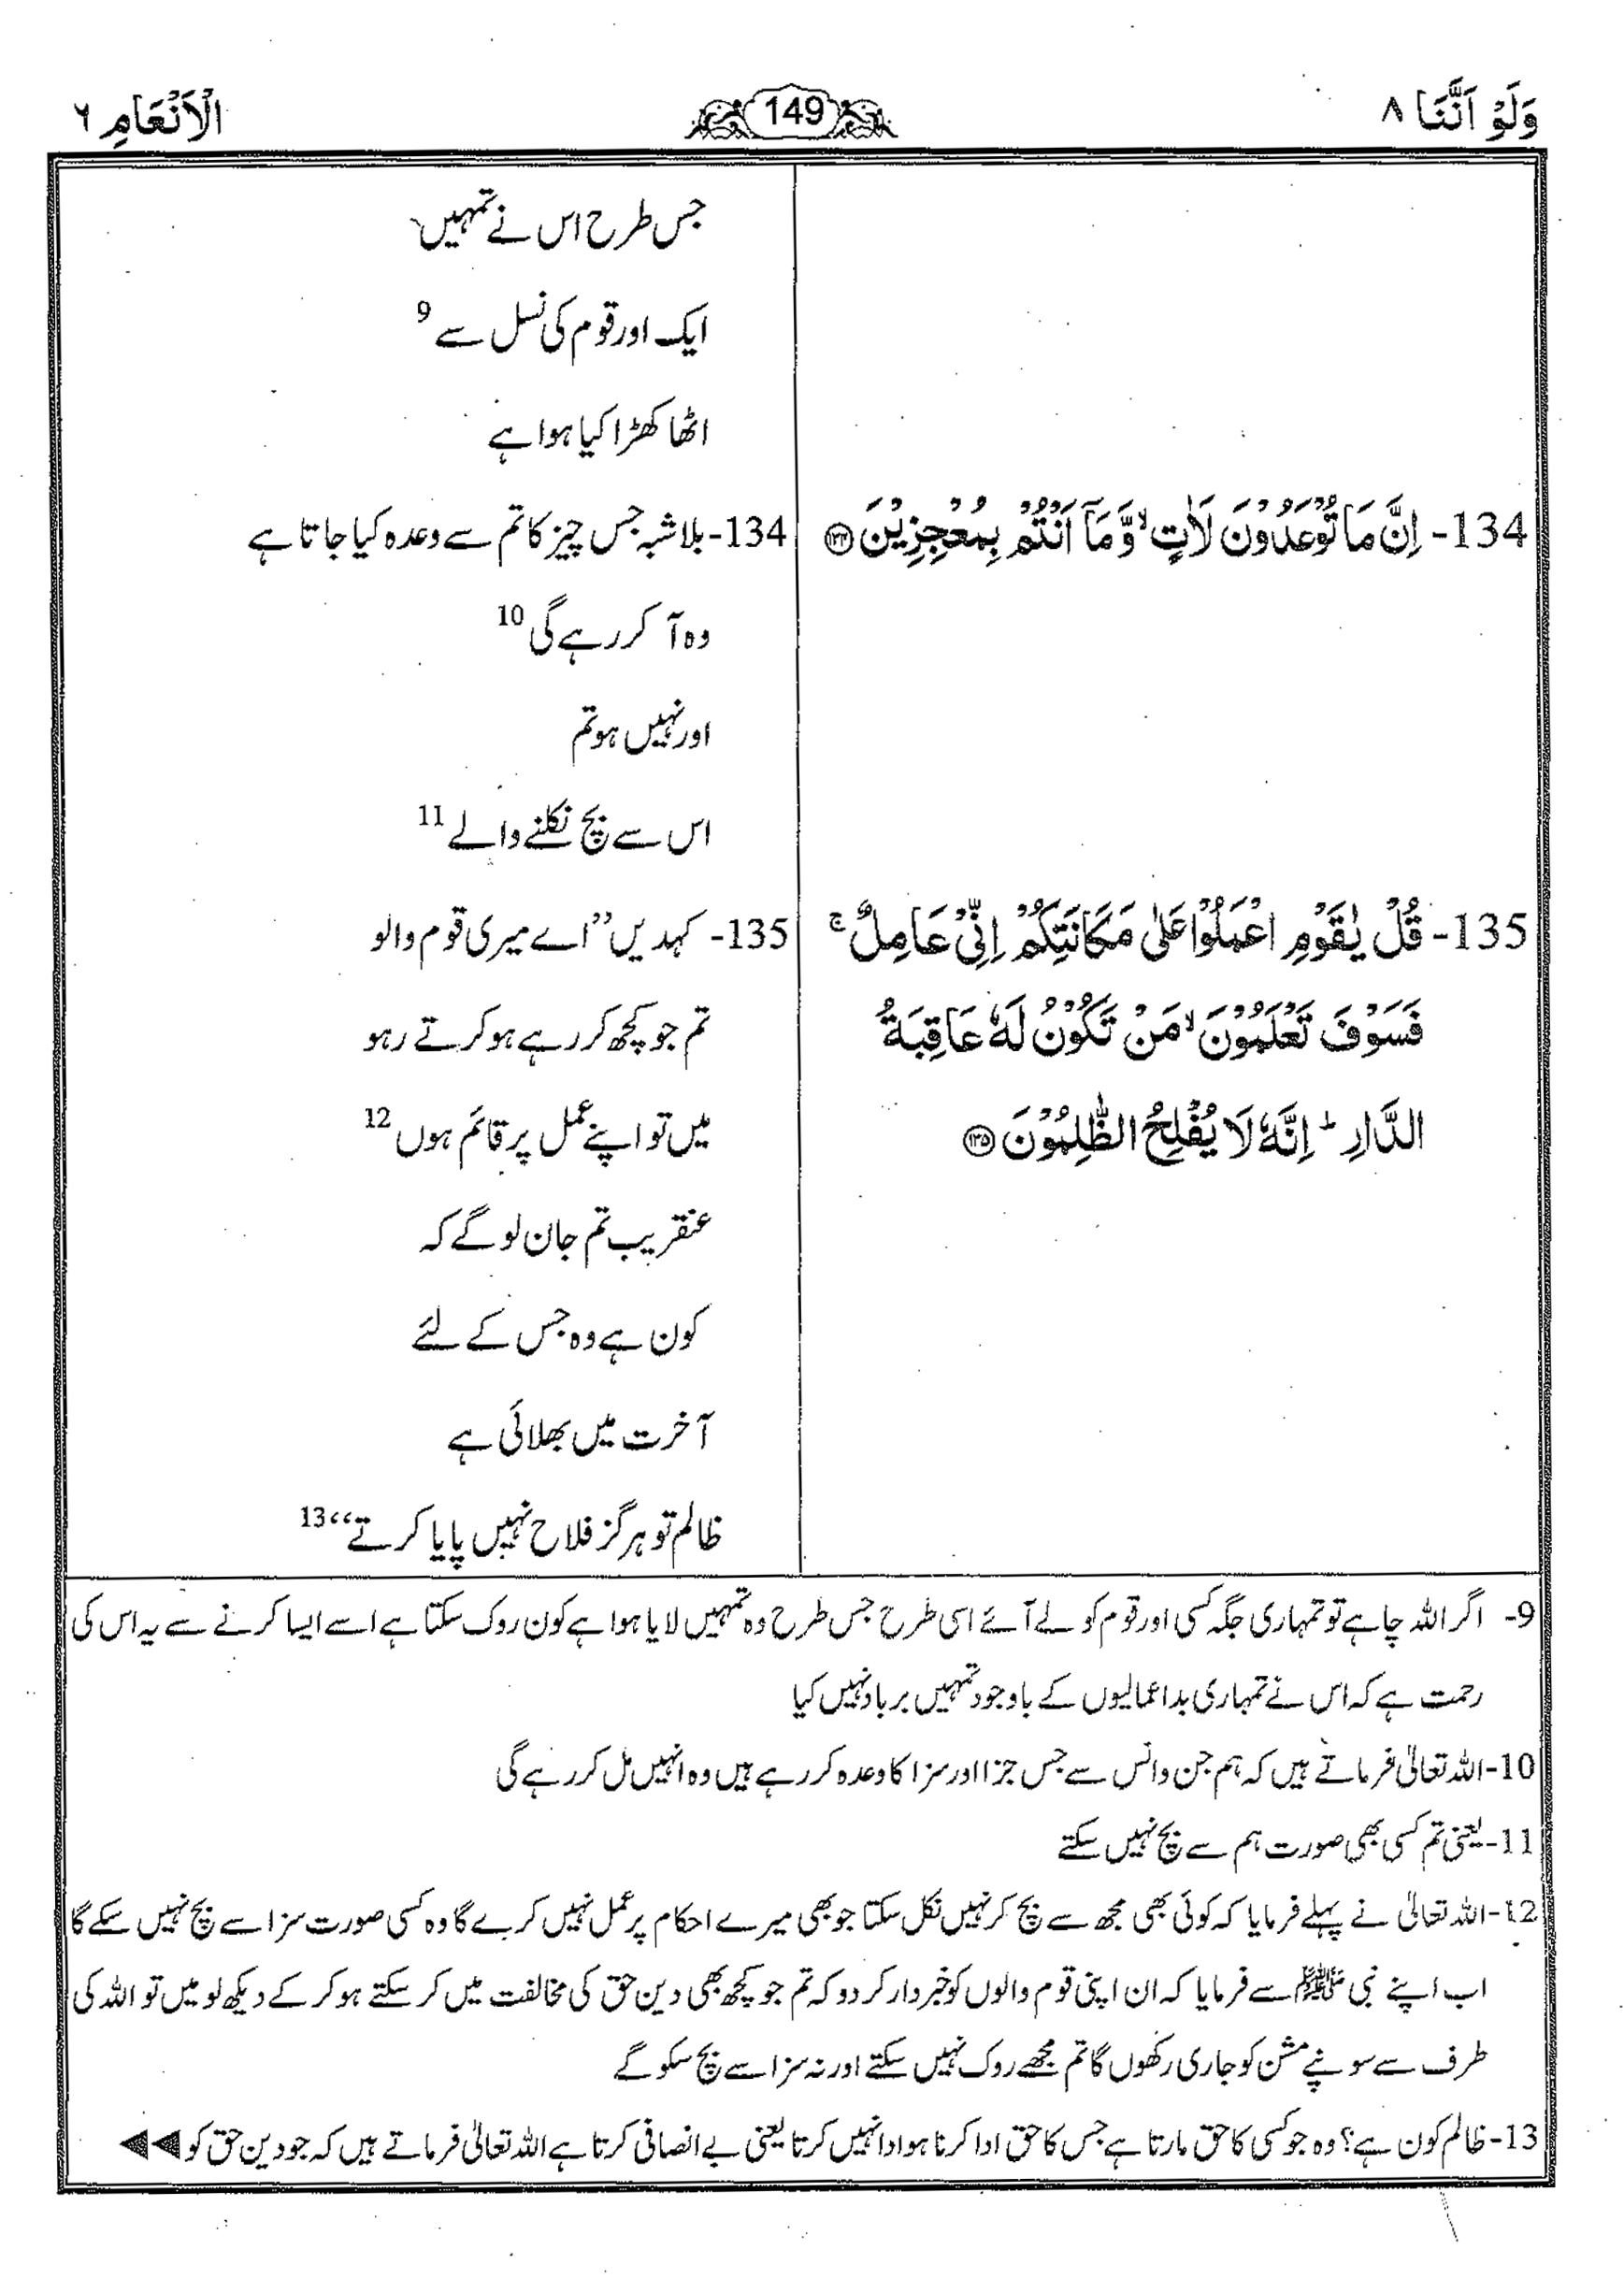 وَلَوْ اَنَّنَا ۸
149
الْاَنْعَامِ ٦
جس طرح اس نے تمہیں
ایک اور قوم کی نسل سے 9
اٹھا کھڑا کیا ہوا ہے
134- اِنَّ مَا تُوْعَدُوْنَ لَاٰتٍ ۙ وَّمَآ اَنْتُمْ بِمُعْجِزِيْنَ ۝۱۳۴
134- بلاشبہ جس چیز کا تم سے وعدہ کیا جاتا ہے
وہ آ کر رہے گی 10
اور نہیں ہو تم
اس سے بچ نکلنے والے 11
135- قُلْ يٰقَوْمِ اعْمَلُوْا عَلٰى مَكَانَتِكُمْ اِنِّيْ عَامِلٌ ۚ
فَسَوْفَ تَعْلَمُوْنَ ۙ مَنْ تَكُوْنُ لَهٗ عَاقِبَةُ
الدَّارِ ؕ اِنَّهٗ لَا يُفْلِحُ الظّٰلِمُوْنَ ۝۱۳۵
135- کہدیں ’’اے میری قوم والو
تم جو کچھ کر رہے ہو کرتے رہو
میں تو اپنے عمل پر قائم ہوں 12
عنقریب تم جان لو گے کہ
کون ہے وہ جس کے لئے
آخرت میں بھلائی ہے
ظالم تو ہرگز فلاح نہیں پایا کرتے‘‘ 13
9- اگر اللہ چاہے تو تمہاری جگہ کسی اور قوم کو لے آئے اسی طرح جس طرح وہ تمہیں لایا ہوا ہے کون روک سکتا ہے اسے ایسا کرنے سے یہ اس کی
رحمت ہے کہ اس نے تمہاری بداعمالیوں کے باوجود تمہیں برباد نہیں کیا
10- اللہ تعالیٰ فرماتے ہیں کہ ہم جن وانس سے جس جزا اور سزا کا وعدہ کر رہے ہیں وہ انہیں مل کر رہے گی
11- یعنی تم کسی بھی صورت ہم سے بچ نہیں سکتے
12- اللہ تعالیٰ نے پہلے فرمایا کہ کوئی بھی مجھ سے بچ کر نہیں نکل سکتا جو بھی میرے احکام پر عمل نہیں کرے گا وہ کسی صورت سزا سے بچ نہیں سکے گا
اب اپنے نبی ﷺ سے فرمایا کہ ان اپنی قوم والوں کو خبردار کر دو کہ تم جو کچھ بھی دین حق کی مخالفت میں کر سکتے ہو کر کے دیکھ لو میں تو اللہ کی
طرف سے سونپے مشن کو جاری رکھوں گا تم مجھے روک نہیں سکتے اور نہ سزا سے بچ سکو گے
13- ظالم کون ہے؟ وہ جو کسی کا حق مارتا ہے جس کا حق ادا کرنا ہو ادا نہیں کرتا یعنی بے انصافی کرتا ہے اللہ تعالیٰ فرماتے ہیں کہ جو دین حق کو ◀◀